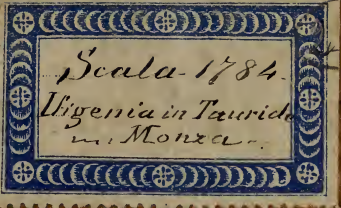 Scala - 1784 -
Ifigenia in Tauride
in Monza -